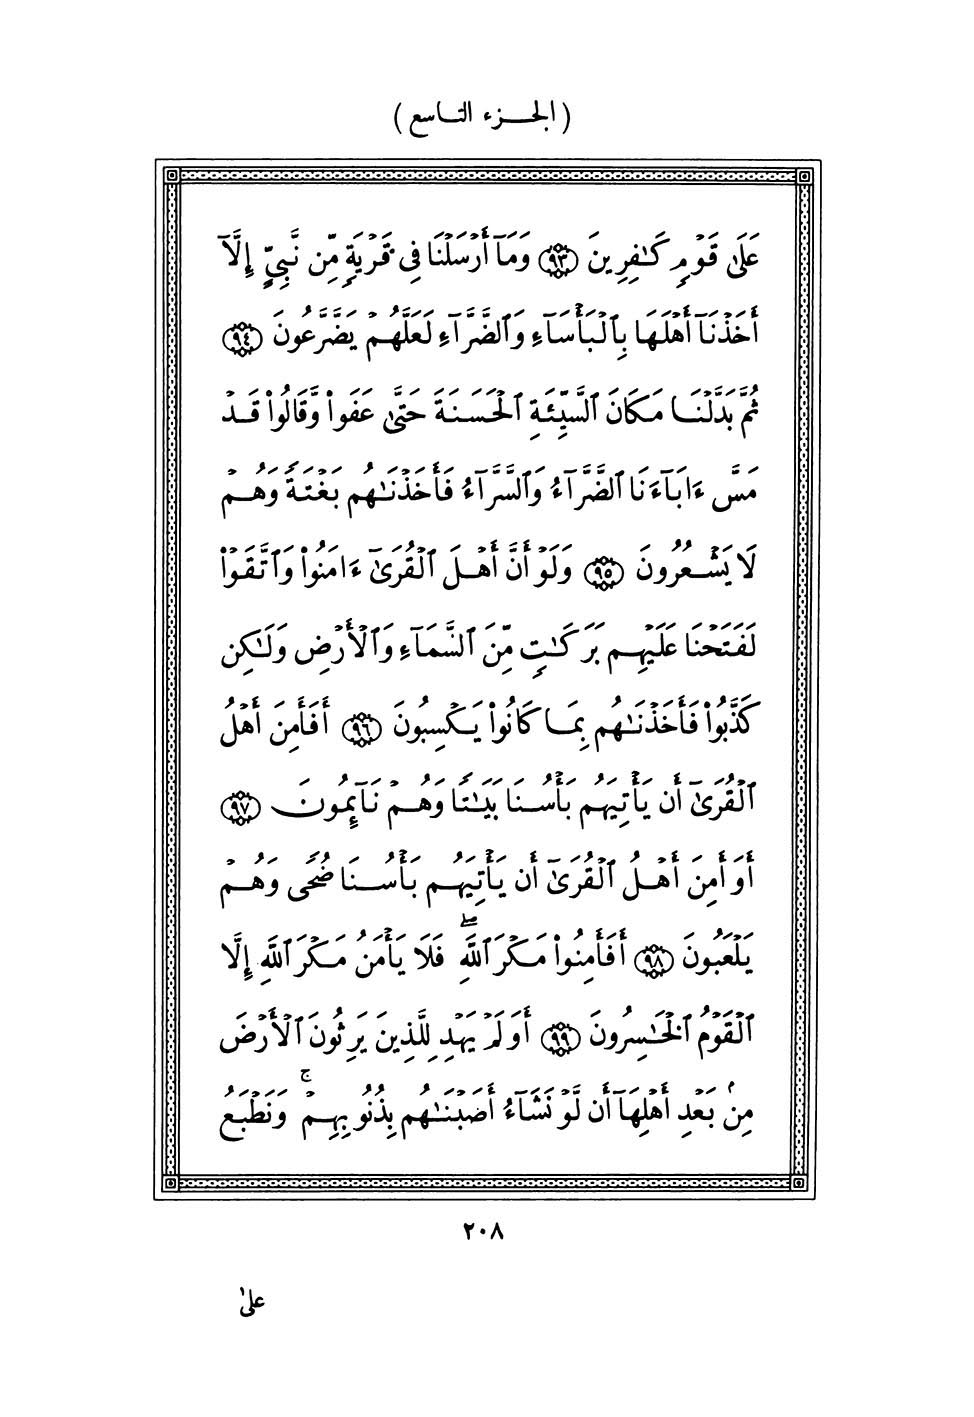 (الجزء التاسع)
عَلَىٰ قَوْمٍ كَـٰفِرِينَ ﴿٩٣﴾ وَمَآ أَرْسَلْنَا فِى قَرْيَةٍ مِّن نَّبِىٍّ إِلَّآ
أَخَذْنَآ أَهْلَهَا بِٱلْبَأْسَآءِ وَٱلضَّرَّآءِ لَعَلَّهُمْ يَضَّرَّعُونَ ﴿٩٤﴾
ثُمَّ بَدَّلْنَا مَكَانَ ٱلسَّيِّئَةِ ٱلْحَسَنَةَ حَتَّىٰ عَفَوا۟ وَّقَالُوا۟ قَدْ
مَسَّ ءَابَآءَنَا ٱلضَّرَّآءُ وَٱلسَّرَّآءُ فَأَخَذْنَـٰهُم بَغْتَةً وَهُمْ
لَا يَشْعُرُونَ ﴿٩٥﴾ وَلَوْ أَنَّ أَهْلَ ٱلْقُرَىٰٓ ءَامَنُوا۟ وَٱتَّقَوْا۟
لَفَتَحْنَا عَلَيْهِم بَرَكَـٰتٍ مِّنَ ٱلسَّمَآءِ وَٱلْأَرْضِ وَلَـٰكِن
كَذَّبُوا۟ فَأَخَذْنَـٰهُم بِمَا كَانُوا۟ يَكْسِبُونَ ﴿٩٦﴾ أَفَأَمِنَ أَهْلُ
ٱلْقُرَىٰٓ أَن يَأْتِيَهُم بَأْسُنَا بَيَـٰتًا وَهُمْ نَآئِمُونَ ﴿٩٧﴾
أَوَأَمِنَ أَهْلُ ٱلْقُرَىٰٓ أَن يَأْتِيَهُم بَأْسُنَا ضُحًى وَهُمْ
يَلْعَبُونَ ﴿٩٨﴾ أَفَأَمِنُوا۟ مَكْرَ ٱللَّهِ ۖ فَلَا يَأْمَنُ مَكْرَ ٱللَّهِ إِلَّا
ٱلْقَوْمُ ٱلْخَـٰسِرُونَ ﴿٩٩﴾ أَوَلَمْ يَهْدِ لِلَّذِينَ يَرِثُونَ ٱلْأَرْضَ
مِنۢ بَعْدِ أَهْلِهَآ أَن لَّوْ نَشَآءُ أَصَبْنَـٰهُم بِذُنُوبِهِمْ ۚ وَنَطْبَعُ
٢٠٨
علىٰ